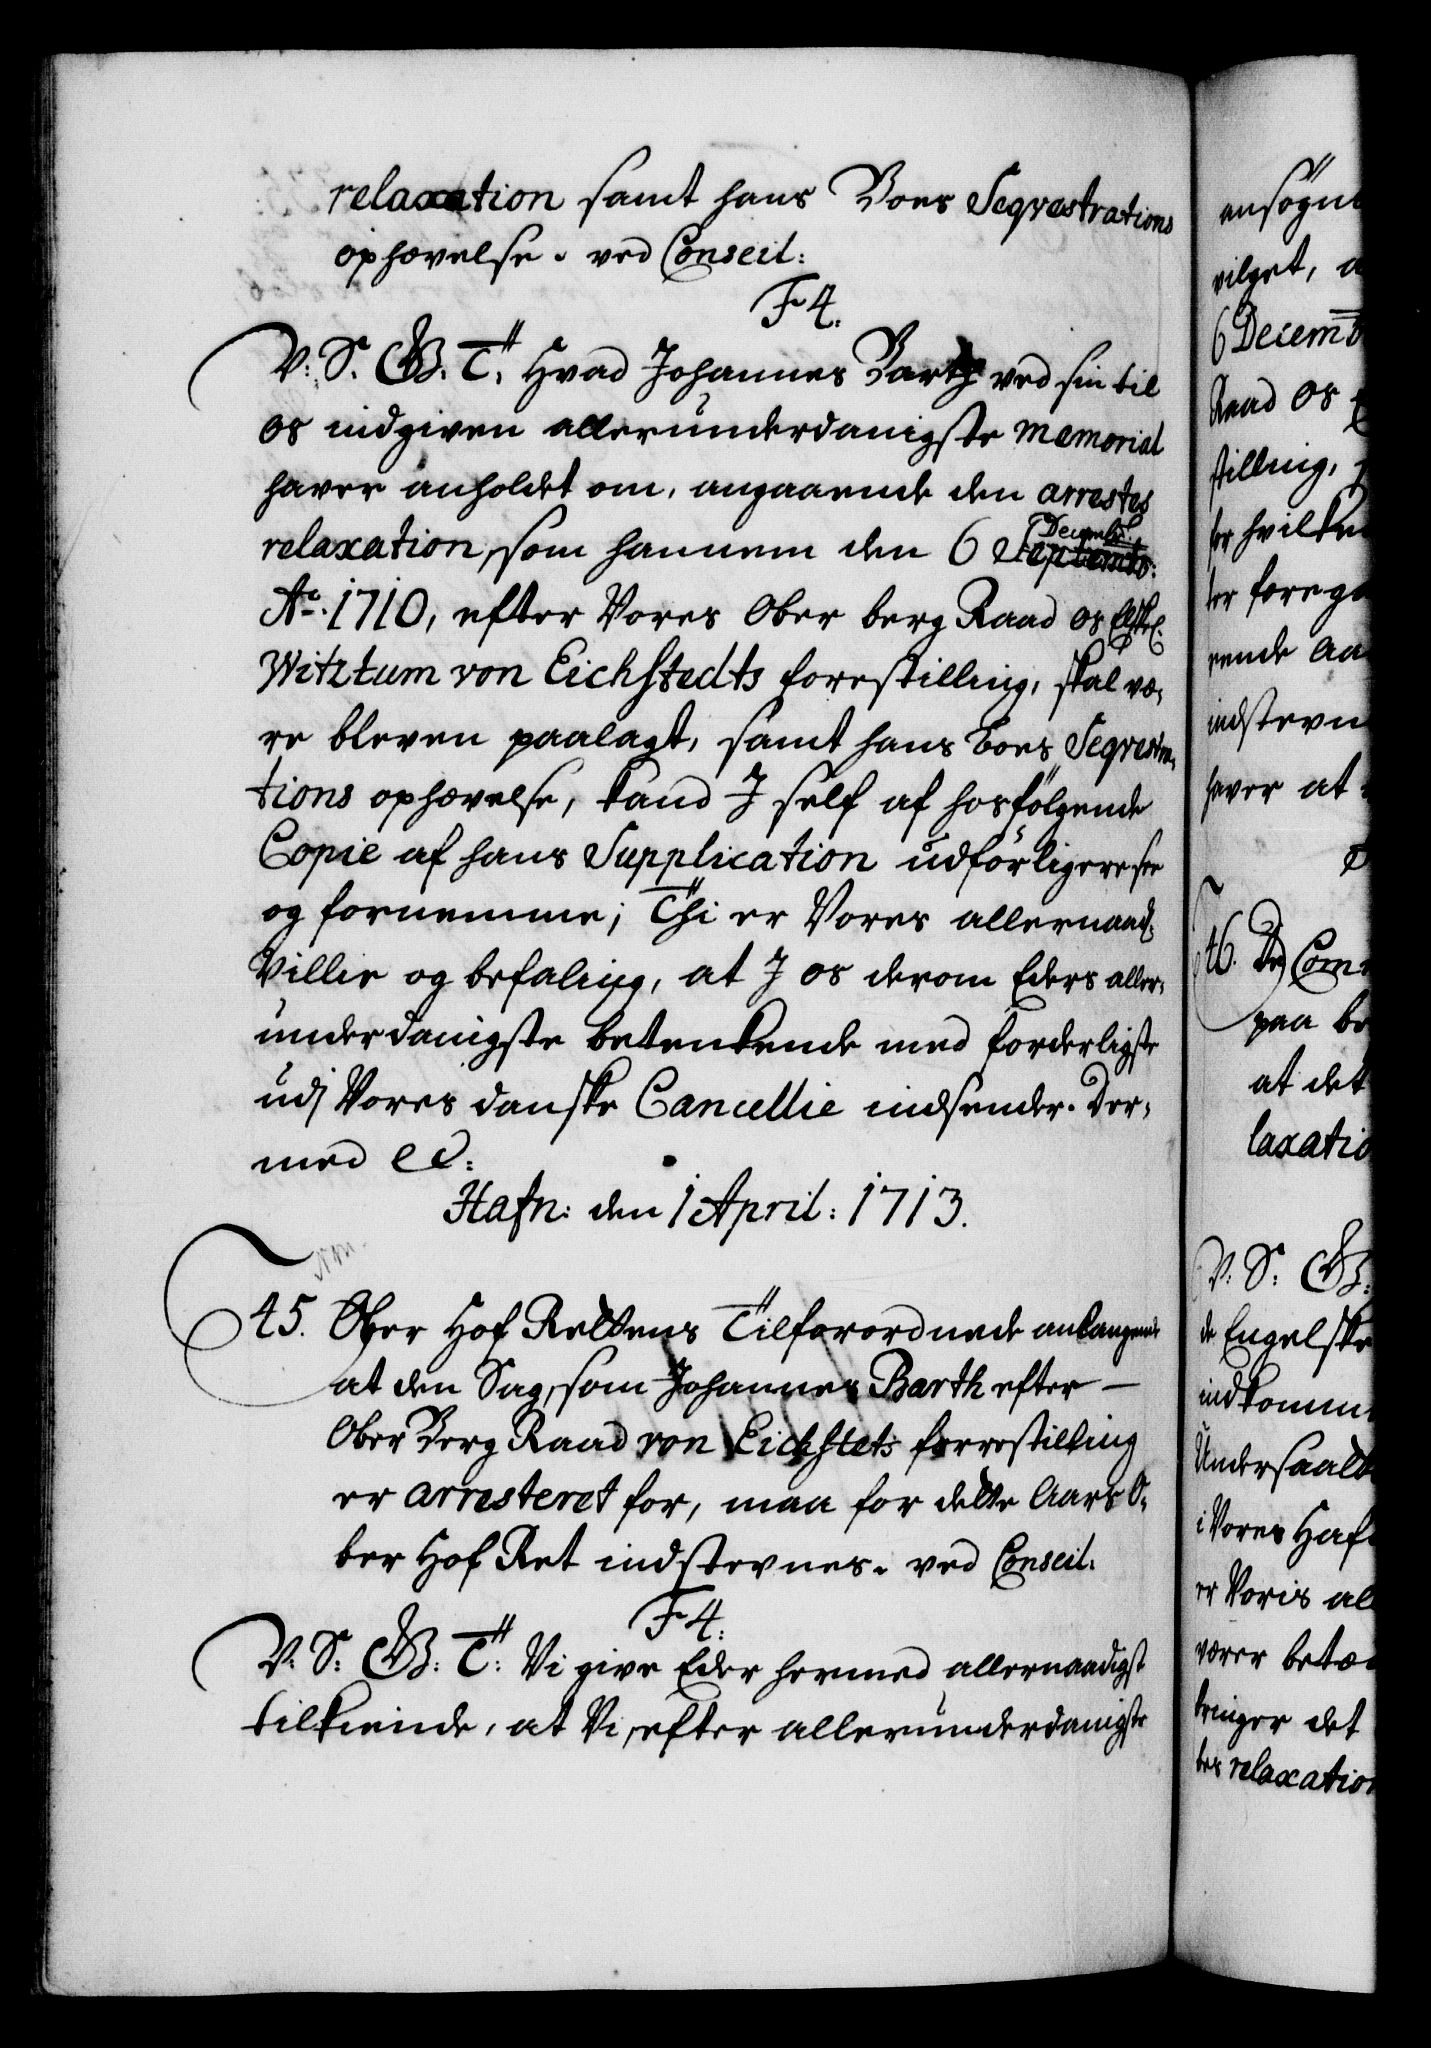 relaxation samt hans Boes Seqvestrations
ophævelse. ved Conseil:
F 4.
V: S. G. T. Hvad Johannes Barth ved sin til
os indgiven allerunderdanigste memorial
haver anholdet om, angaaende den arrestes
relaxation, som hannem den 6 Septemb: Decemb:
Ao. 1710, efter Vores Ober berg Raad os Elskel.
Witztum von Eichstedts forestilling, skal væ-
re bleven paalagt, samt hans Boes Seqvestra-
tions ophævelse, kand J self af hosfølgende
Copie af hans Supplication udførligere see
og fornemme; Thi er Vores allernaad:
Villie og befaling, at J os derom Eders aller-
underdanigste betenkende med forderligste
udj Vores danske Cancellie indsender. Der-
med ec:
Hafn: den 1 April: 1713.
45. Ober Hof Rettens Tilforordnede anlangende
at den Sag, som Johannes Barth efter –
Ober Berg Raad von Eichstets forrestilling
er arresteret for, maa for dette Aars O-
ber Hof Ret indstevnes. ved Conseil:
F 4.
V: S: G: T: Vi give Eder hermed allernaadigst
tilkiende, at Vi, efter allerunderdanigste
ansøgni
vilget, a
6 Decemb
Raad os E
stilling,
for hvilke
ter forega
rende Aa
indstevn
haver at
46. De Com
paa be
at det
laxatio
V: S: G:
de Engelske
indkomm
Undersaatt
i Vores Haf
er Voris al
værer betæ
bringer det
tes relaxation